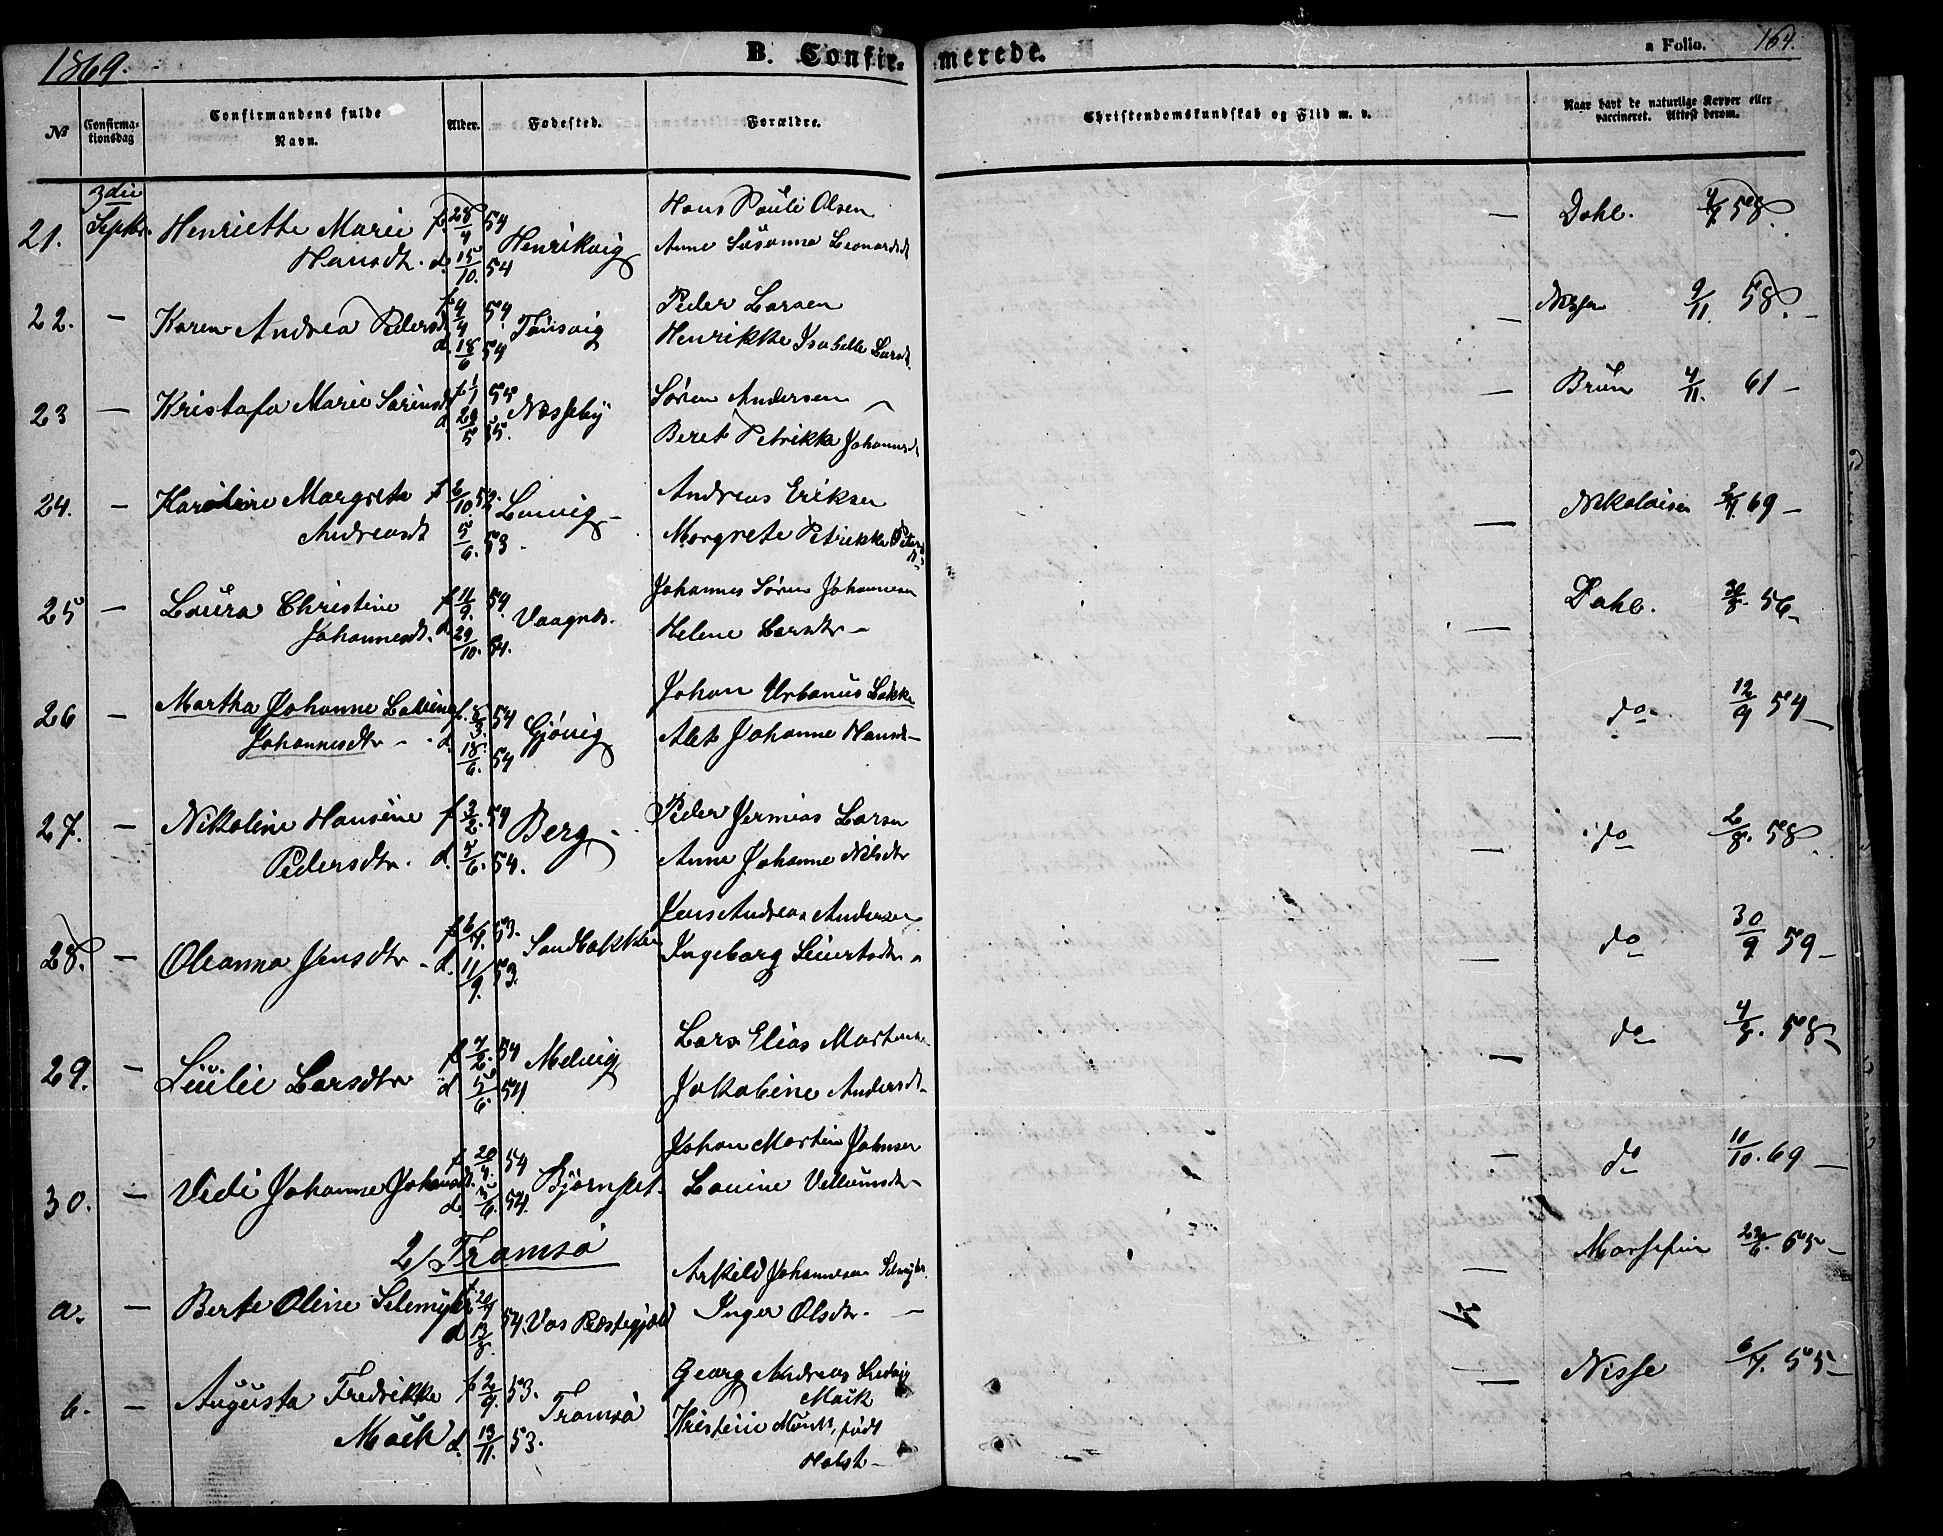 1869.
B. Confirmerede.
a Folio. 164.
№
Confirmationsdag
Confirmandens fulde Navn.
Alder.
Fødested.
Forældre.
Christendomskundskab og Flid m. v.
Naar havt de naturlige Kopper eller vaccineret. Attest derom.
3die Septbr.
21. Henriette Marie f. 28/4 54 Henrikvig Hans Pauli Olsen — Dahl. 58.
Hansdt. d. 15/10. 54 Anne Susanna Leonardsdt
22. — Karen Andrea Pedersdt f. 4/4 54 Tønsvig Peder Larsen — 9/11. 58. —
d. 18/6 54 Henrikke Isabelle Larsdt.
23 — Kristafa Marie Sørensdt f. 1/1 55 Næsseby Søren Andersen — Brun 4/11. 61 —
d. 28/5 55. Beret Petrikka Johannesdt
24. — Karoline Margrete f. 6/10. 52. Andreas Eriksen — Nikolaisen 69 —
Andreasdt d. 5/6. 53. Margrete Petrikke Petersdt
25 — Laura Christine f. 11/9. 54 Vaagnæs. Johannes Søren Johannesen — Dahl. 56 —
Johannesdt. d. 29/10. 54. Helene Larsdtr —
26 — Martha Johanne f. 8/3. 54 Gjøvig Johan Urbanus Bakke — do 12/9 54 —
Johannesdtr — d. 18/6. 54 Alet Johanne Hansdt —
27. — Nikoline Hansine f. 3/2. 54 Berg. Peder Jermias Larsen — do 2/8. 58
Pedersdtr. d. 7/6. 54. Anne Johanne Nilsdtr
28. — Oleanna Jensdtr f. 53. Sandbakken Jens Andreas Andersen — do 30/9 59 —
d. 11/9. 53. Ingeborg Siversdtr
29. — Larsdtr f. 7/2. 54 Melvig Lars Elias Martens — do 4/8. 58 —
d. 5/6. 54 Jakobine Andersdt —
30. — Vedi Johanne Johansdt. f. 20/4. 54 Bjørnset. Johan Martin Johnsen — do 11/10. 69 —
d. 5/6. 54. Lovine Vellumsdtr —
2/ Tromsø
a. — Berte Oline f. 54. Vos Præstegjæld Johannesen — 65 —
d. 13/8. Inger Olsdtr. —
b. — Augusta Fredrikke f. 2/9. 53. Tromsø Georg Andreas Ludvig — Nisse 6/7. 55 —
Mack d. 13/11. 53. Mack
Kristine Mack, født
Holst —